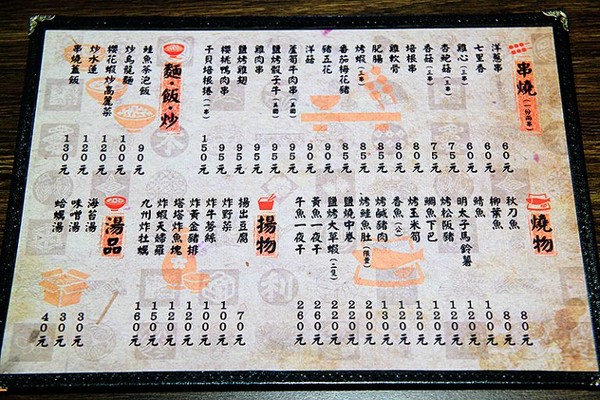 串燒(一份兩串)
洋蔥串 60元
七里香 60元
雞心(三串) 60元
杏鮑菇(三串) 75元
香菇(三串) 75元
培根串 80元
雞軟骨 80元
肥腸 85元
烤蝦(三串) 85元
番茄梅花豬 85元
豬五花 90元
洋菇 90元
蘆筍牛肉串(美國) 95元
鹽烤骰子牛(美國) 95元
雞肉串 95元
鹽烤雞翅 95元
櫻桃鴨肉串 95元
干貝培根捲(一串) 150元
麵·飯·炒
鮭魚茶泡飯 90元
炒烏龍麵 100元
櫻花蝦炒高麗菜 120元
炒水蓮 120元
串燒蓋飯 130元
燒物
秋刀魚 80元
柳葉魚 80元
鯖魚 100元
明太子馬鈴薯 120元
烤松阪豬 120元
鯛魚下巴 120元
烤玉米筍 120元
香魚(公) 120元
烤鹹豬肉 130元
烤鮭魚肚(限量) 200元
鹽燒中卷 220元
鹽烤大草蝦(二隻) 220元
黃魚一夜干 260元
午魚一夜干 260元
揚物
揚出豆腐 70元
炸野菜 100元
炸牛蒡絲 100元
炸黃金豬排 120元
塔塔炸魚塊 120元
炸蝦天婦羅 150元
九州炸牡蠣 160元
湯品
海苔湯 30元
味噌湯 30元
蛤蠣湯 40元